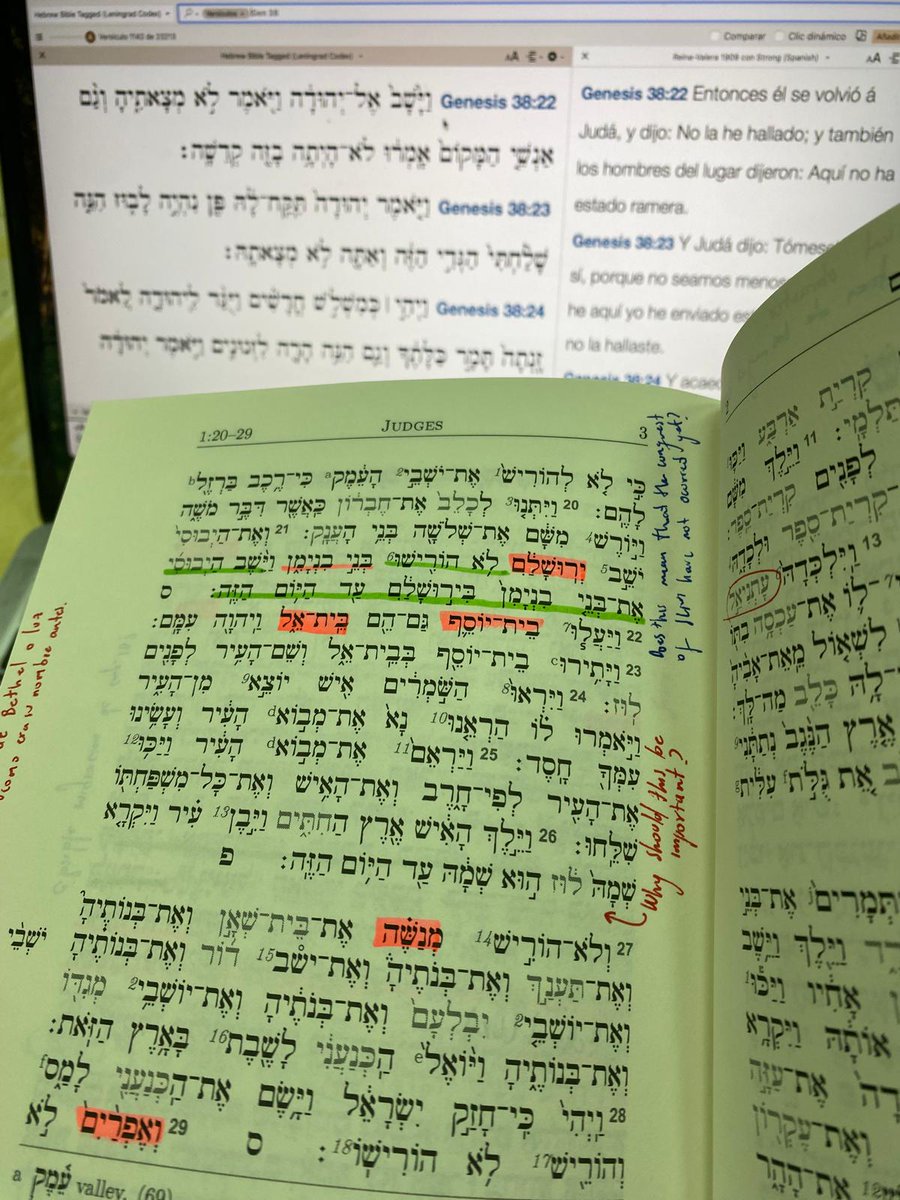 Hebrew Bible Tagged (Leningrad Codex)
Versículo 1143 de 23213
Comparar
Clic dinámico
Hebrew Bible Tagged (Leningrad Codex)
Reina-Valera 1909 con Strong (Spanish)
Genesis 38:22 וַיָּ֙שָׁב֙ אֶל־יְהוּדָ֔ה וַיֹּ֖אמֶר לֹ֣א מְצָאתִ֑יהָ וְגַ֨ם
אַנְשֵׁ֤י הַמָּקוֹם֙ אָֽמְר֔וּ לֹא־הָיְתָ֥ה בָזֶ֖ה קְדֵשָֽׁה׃
Genesis 38:23 וַיֹּ֤אמֶר יְהוּדָה֙ תִּֽקַּֽח־לָ֔הּ פֶּ֖ן נִהְיֶ֣ה לָב֑וּז הִנֵּ֤ה
שָׁלַ֙חְתִּי֙ הַגְּדִ֣י הַזֶּ֔ה וְאַתָּ֖ה לֹ֥א מְצָאתָֽהּ׃
Genesis 38:24 וַיְהִ֣י ׀ כְּמִשְׁלֹ֣שׁ חֳדָשִׁ֗ים וַיֻּגַּ֨ד לִֽיהוּדָ֤ה לֵֽאמֹר֙
זָֽנְתָה֙ תָּמָ֣ר כַּלָּתֶ֔ךָ וְגַ֛ם הִנֵּ֥ה הָרָ֖ה לִזְנוּנִ֑ים וַיֹּ֣אמֶר יְהוּדָ֔ה
Genesis 38:22 Entonces él se volvió á
Judá, y dijo: No la he hallado; y también
los hombres del lugar dijeron: Aquí no ha
estado ramera.
Genesis 38:23 Y Judá dijo:
sí, porque no seamos
he aquí yo he enviado
no la hallaste.
Genesis 38:24 Y
1:20–29 JUDGES 3
כִּ֣י לֹ֤א לְהוֹרִישׁ֙1 אֶת־יֹשְׁבֵ֣י2 הָעֵ֔מֶקa כִּי־רֶ֥כֶב בַּרְזֶ֖לb
לָהֶֽם׃ 20 וַיִּתְּנ֤וּ3 לְכָלֵב֙ אֶת־חֶבְר֔וֹן כַּאֲשֶׁ֖ר דִּבֶּ֣ר מֹשֶׁ֑ה
וַיּ֣וֹרֶשׁ4 מִשָּׁ֔ם אֶת־שְׁלֹשָׁ֖ה בְּנֵ֥י הָעֲנָֽק׃ 21 וְאֶת־הַיְבוּסִי֙
יֹשֵׁ֣ב5 יְרֽוּשָׁלִַ֔ם לֹ֥א הוֹרִ֖ישׁוּ6 בְּנֵ֣י בִנְיָמִ֑ן וַיֵּ֨שֶׁב הַיְבוּסִ֜י
אֶת־בְּנֵ֤י בִנְיָמִן֙ בִּיר֣וּשָׁלִַ֔ם עַ֖ד הַיּ֥וֹם הַזֶּֽה׃ ס
22 וַיַּעֲל֧וּ7 בֵית־יוֹסֵ֛ף גַּם־הֵ֖ם בֵּֽית־אֵ֑ל וַֽיהוָ֖ה עִמָּֽם׃
23 וַיָּתִ֥ירוּc בֵית־יוֹסֵ֖ף בְּבֵֽית־אֵ֑ל וְשֵׁם־הָעִ֥יר לְפָנִ֖ים
לֽוּז׃ 24 וַיִּרְאוּ֙8 הַשֹּׁ֣מְרִ֔ים אִ֖ישׁ יוֹצֵ֣א9 מִן־הָעִ֑יר
וַיֹּ֣אמְרוּ ל֗וֹ הַרְאֵ֤נוּ10 נָא֙ אֶת־מְב֣וֹאd הָעִ֔יר וְעָשִׂ֥ינוּ
עִמְּךָ֖ חָֽסֶד׃ 25 וַיַּרְאֵם֙11 אֶת־מְב֣וֹאd הָעִ֔יר וַיַּכּ֥וּ12
אֶת־הָעִ֖יר לְפִי־חָ֑רֶב וְאֶת־הָאִ֥ישׁ וְאֶת־כָּל־מִשְׁפַּחְתּ֖וֹ
שִׁלֵּֽחוּ׃ 26 וַיֵּ֣לֶךְ הָאִ֔ישׁ אֶ֖רֶץ הַחִתִּ֑ים וַיִּ֣בֶן13 עִ֗יר וַיִּקְרָ֤א
שְׁמָהּ֙ ל֔וּז ה֣וּא שְׁמָ֔הּ עַ֖ד הַיּ֥וֹם הַזֶּֽה׃ פ
27 וְלֹא־הוֹרִ֣ישׁ14 מְנַשֶּׁ֗ה אֶת־בֵּית־שְׁאָ֣ן וְאֶת־בְּנוֹתֶיהָ֮
וְאֶת־תַּעְנַ֣ךְ וְאֶת־בְּנֹתֶיהָ֒ וְאֶת־יֹשְׁב֨15 ד֜וֹר וְאֶת־בְּנוֹתֶ֗יהָ יֹשְׁבֵ֨י
וְאֶת־יוֹשְׁבֵ֤י2 יִבְלְעָם֙ וְאֶת־בְּנֹתֶ֔יהָ וְאֶת־יוֹשְׁבֵ֥י2 מְגִדּ֖וֹ
וְאֶת־בְּנוֹתֶ֑יהָ וַיּ֙וֹאֶל֙e הַֽכְּנַעֲנִ֔י לָשֶׁ֖בֶת16 בָּאָ֥רֶץ הַזֹּֽאת׃
28 וַֽיְהִי֙ כִּֽי־חָזַ֣ק יִשְׂרָאֵ֔ל וַיָּ֥שֶׂם אֶת־הַֽכְּנַעֲנִ֖י לָמַ֑סf
וְהוֹרֵ֖ישׁ17 לֹ֥א הוֹרִישֽׁוֹ18׃ ס 29 וְאֶפְרַ֙יִם֙ לֹ֣א
a עֵמֶק valley. (69)
Does this mean that the conquest
of JLM have not ocurred yet?
Why should this be
important?
de Bethel o luz
como era su nombre
קִרְיַ֥ת אַרְבַּ֑ע וַיַּכּ֛וּ
תַּלְמָֽי׃ 11 וַיֵּ֣לֶךְ מִשָּׁ֔ם
לְפָנִ֖ים קִרְיַת־סֵֽפֶר׃
קִרְיַת־סֵ֖פֶר וּלְכָדָ֑הּ
13 וַֽיִּלְכְּדָהּ֙ עָתְנִיאֵ֣ל
ל֖וֹ אֶת־עַכְסָ֥ה בִתּ֖וֹ
לִשְׁא֤וֹל מֵֽאֵת־אָבִ֙יהָ֙
לָ֥הּ כָּלֵ֖ב מַה־לָּֽךְ׃
אֶ֤רֶץ הַנֶּ֙גֶב֙ נְתַתָּ֔נִי
אֵ֚ת גֻּלֹּ֣ת עִלִּ֔ית